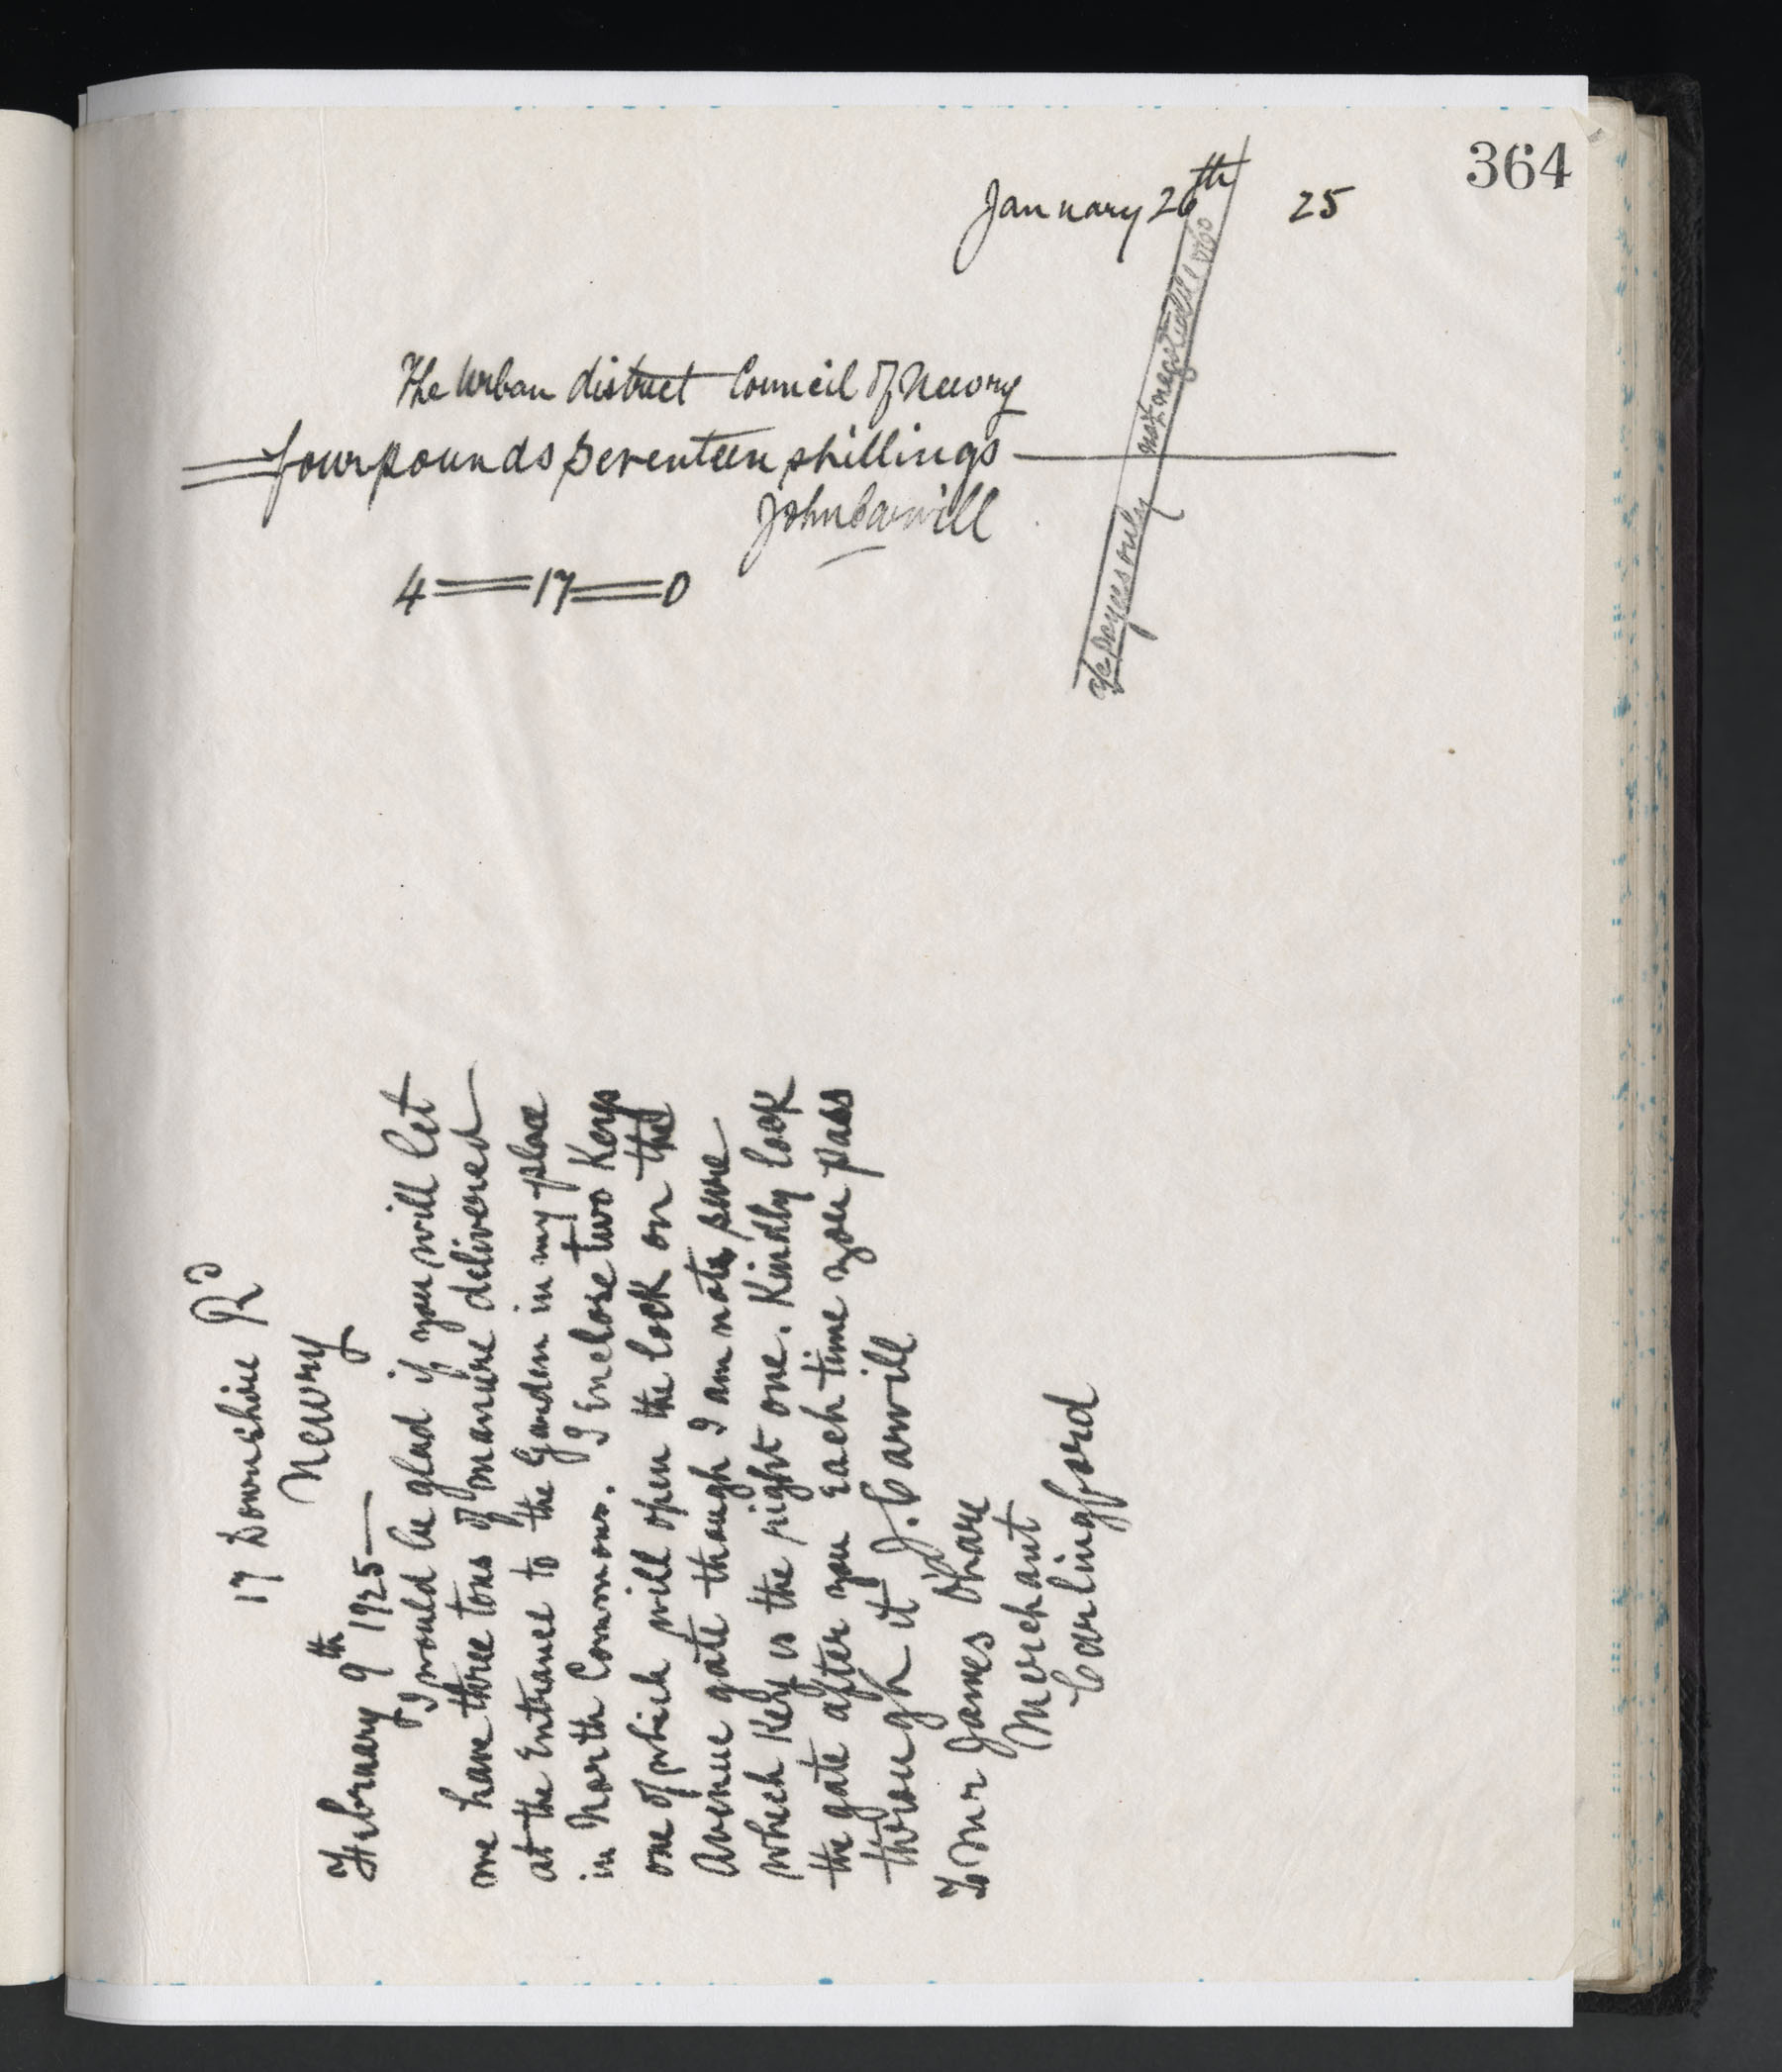 364
January 26th 25
The Urban district Council of Newry
four pounds seventeen shillings
John Carvill
4 = 17 = 0
a/c payees only not negotiable
17 Downshire Rd
Newry
February 9th 1925
I would be glad if you will let
me have three tons of manure delivered
at the Entrance to the Garden in my place
in North Commons. I Enclose two Keys
one of which will open the lock on the
Avenue gate though I am not sure
which Key is the right one. Kindly lock
the gate after you Each time you pass
through it J. Carvill
To Mr James O'hare
Merchant
Carlingford